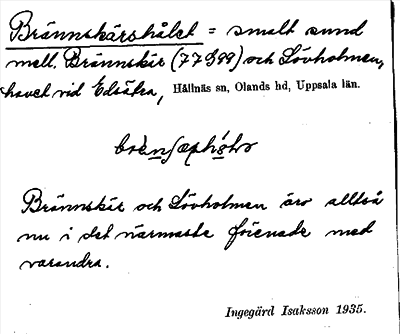 Brännskärshålet = smalt sund
mell. Brännskär (77399) och Lövholmen,
havet vid Edsätra, Hållnäs sn, Olands hd, Uppsala län.
Brännskär och Lövholmen äro alltså
nu i det närmaste förenade med
varandra.
Ingegärd Isaksson 1935.